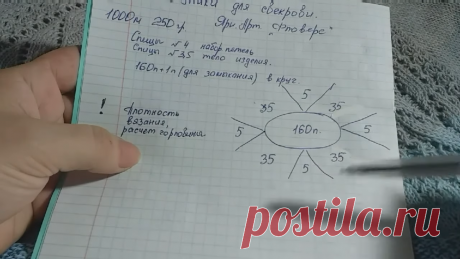 для свекрови.
1000м 250гр Ярн Арт "Фловерс"
Спицы №4 набор петель
Спицы №3,5 тело изделия.
160п+1п (для замыкания) в круг
! Плотность
вязания,
расчет горловины
5
35 35
5 160п. 5
35 35
5
postila.ru